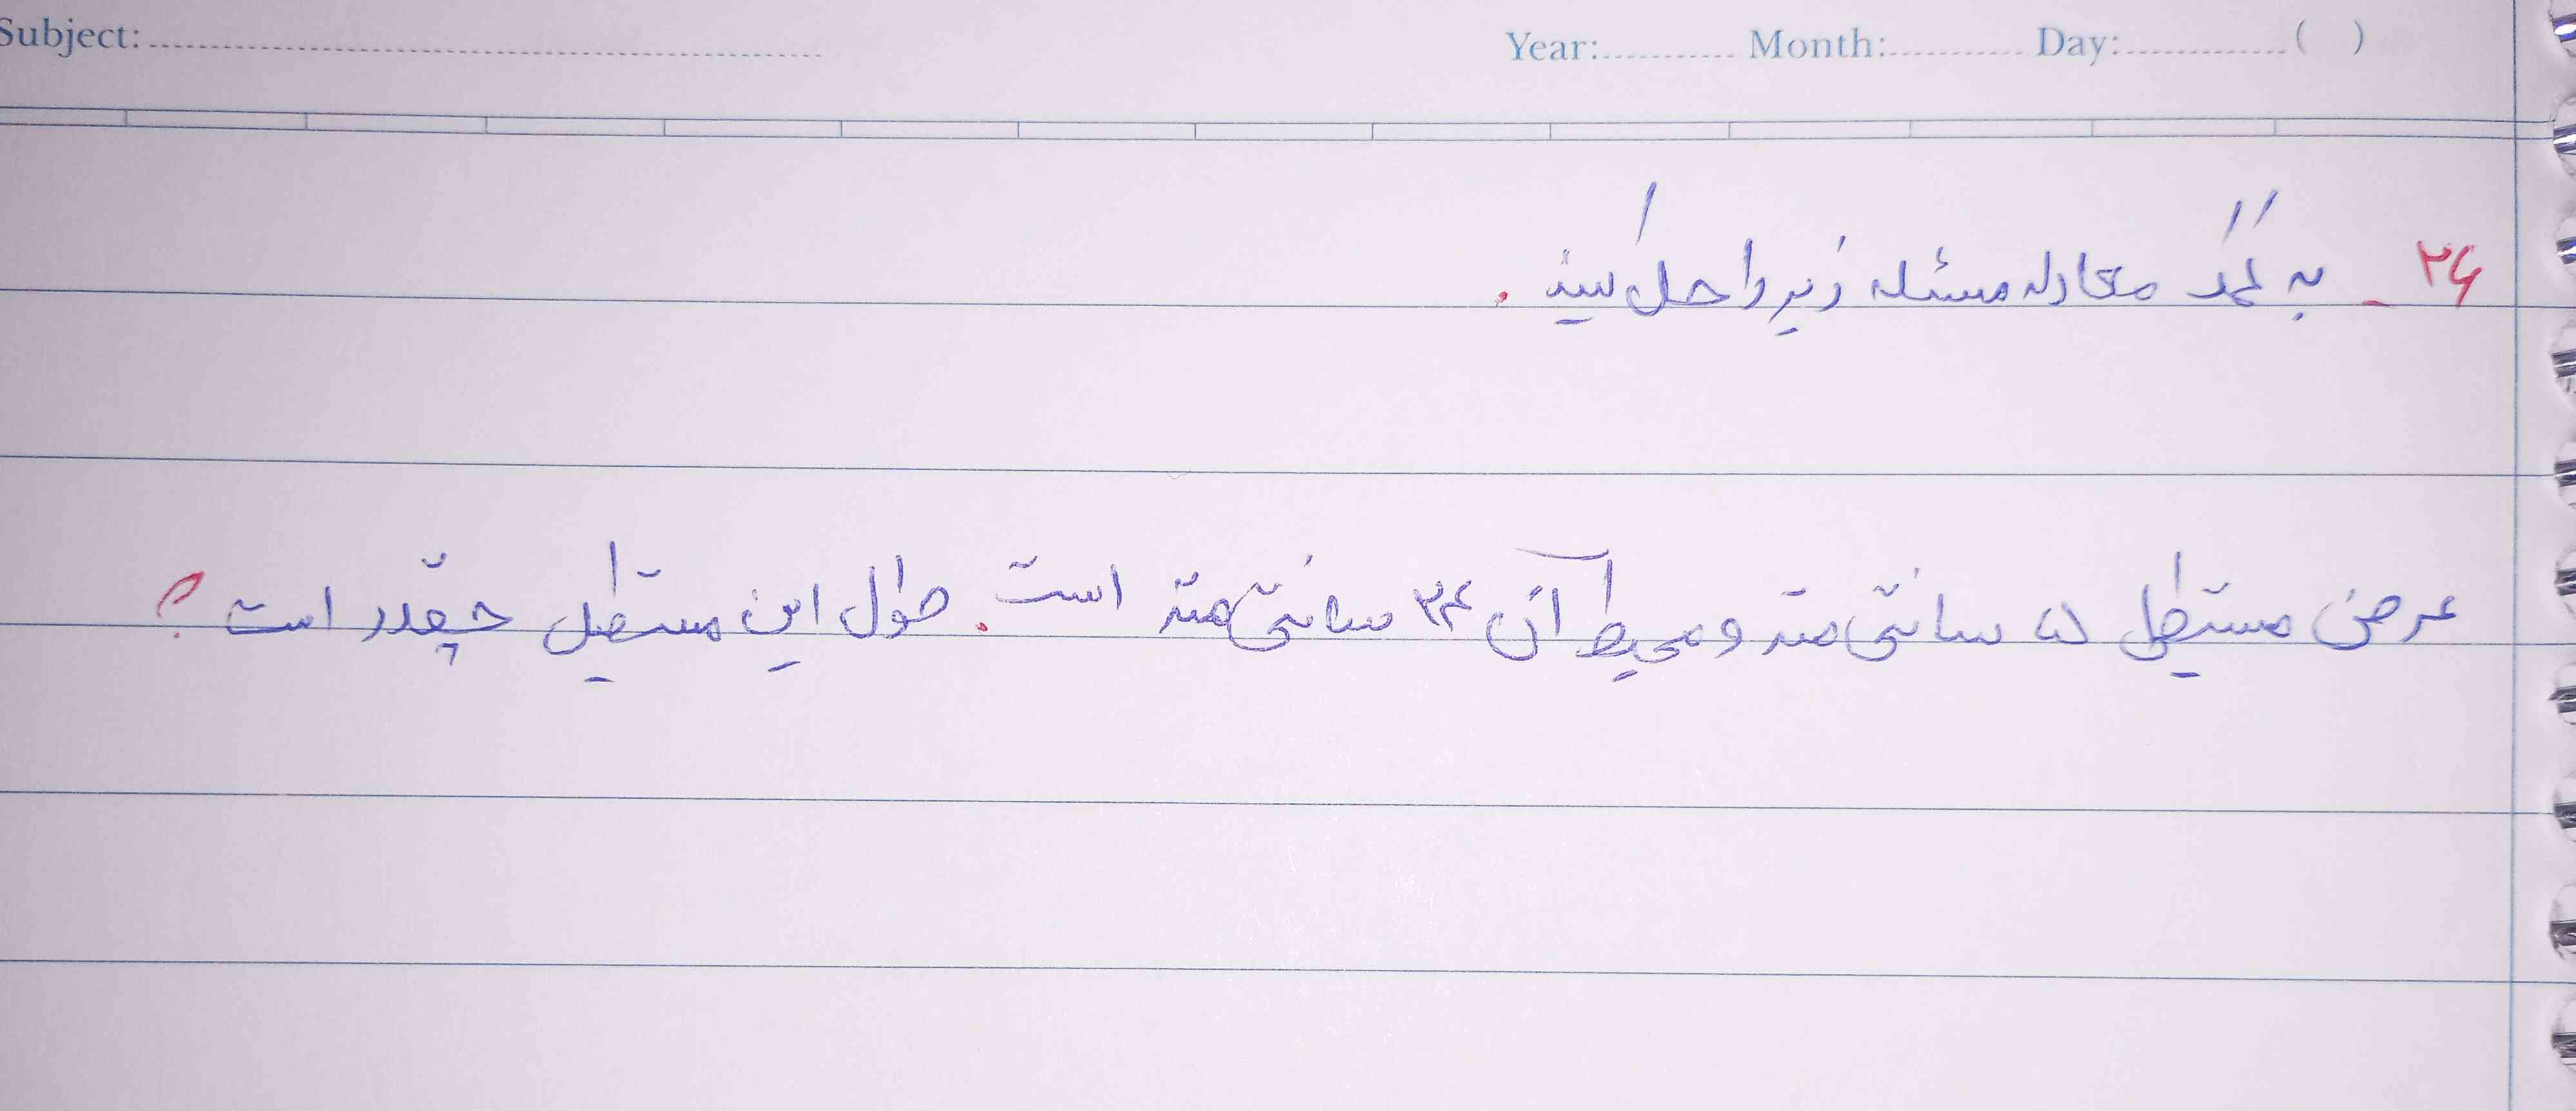 Subject: Year: Month: Day: ( )
۲۶ - به کمک معادله مسئله زیر را حل کنید .
عرض مستطیلی ۵ سانتی متر و محیط آن ۳۴ سانتی متر است . طول این مستطیل چقدر است ؟